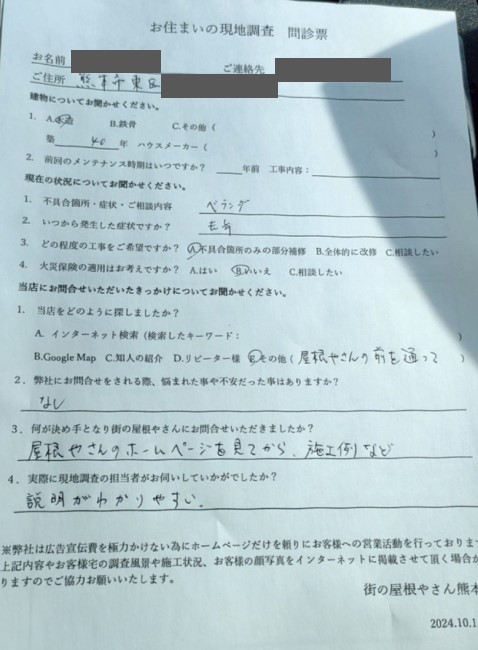 お住まいの現地調査 問診票
お名前 ご連絡先
ご住所 熊本市東区
建物についてお聞かせください。
1. A.木造 B.鉄骨 C.その他( )
築 40 年 ハウスメーカー( )
2. 前回のメンテナンス時期はいつですか? 年前 工事内容:
現在の状況についてお聞かせください。
1. 不具合箇所・症状・ご相談内容 ベランダ
2. いつから発生した症状ですか? 去年
3. どの程度の工事をご希望ですか? A.不具合箇所のみの部分補修 B.全体的に改修 C.相談したい
4. 火災保険の適用はお考えですか? A.はい B.いいえ C.相談したい
当店にお問合せいただいたきっかけについてお聞かせください。
1. 当店をどのように探しましたか?
A. インターネット検索(検索したキーワード: )
B.Google Map C.知人の紹介 D.リピーター様 E.その他(屋根やさんの前を通って )
2. 弊社にお問合せをされる際、悩まれた事や不安だった事はありますか?
なし
3. 何が決め手となり街の屋根やさんにお問合せいただきましたか?
屋根やさんのホームページを見てから、施工例など
4. 実際に現地調査の担当者がお伺いしていかがでしたか?
説明がわかりやすい。
※弊社は広告宣伝費を極力かけない為にホームページだけを頼りにお客様への営業活動を行っております
上記内容やお客様宅の調査風景や施工状況、お客様の顔写真をインターネットに掲載させて頂く場合が
りますのでご協力お願いいたします。
街の屋根やさん熊本
2024.10.1